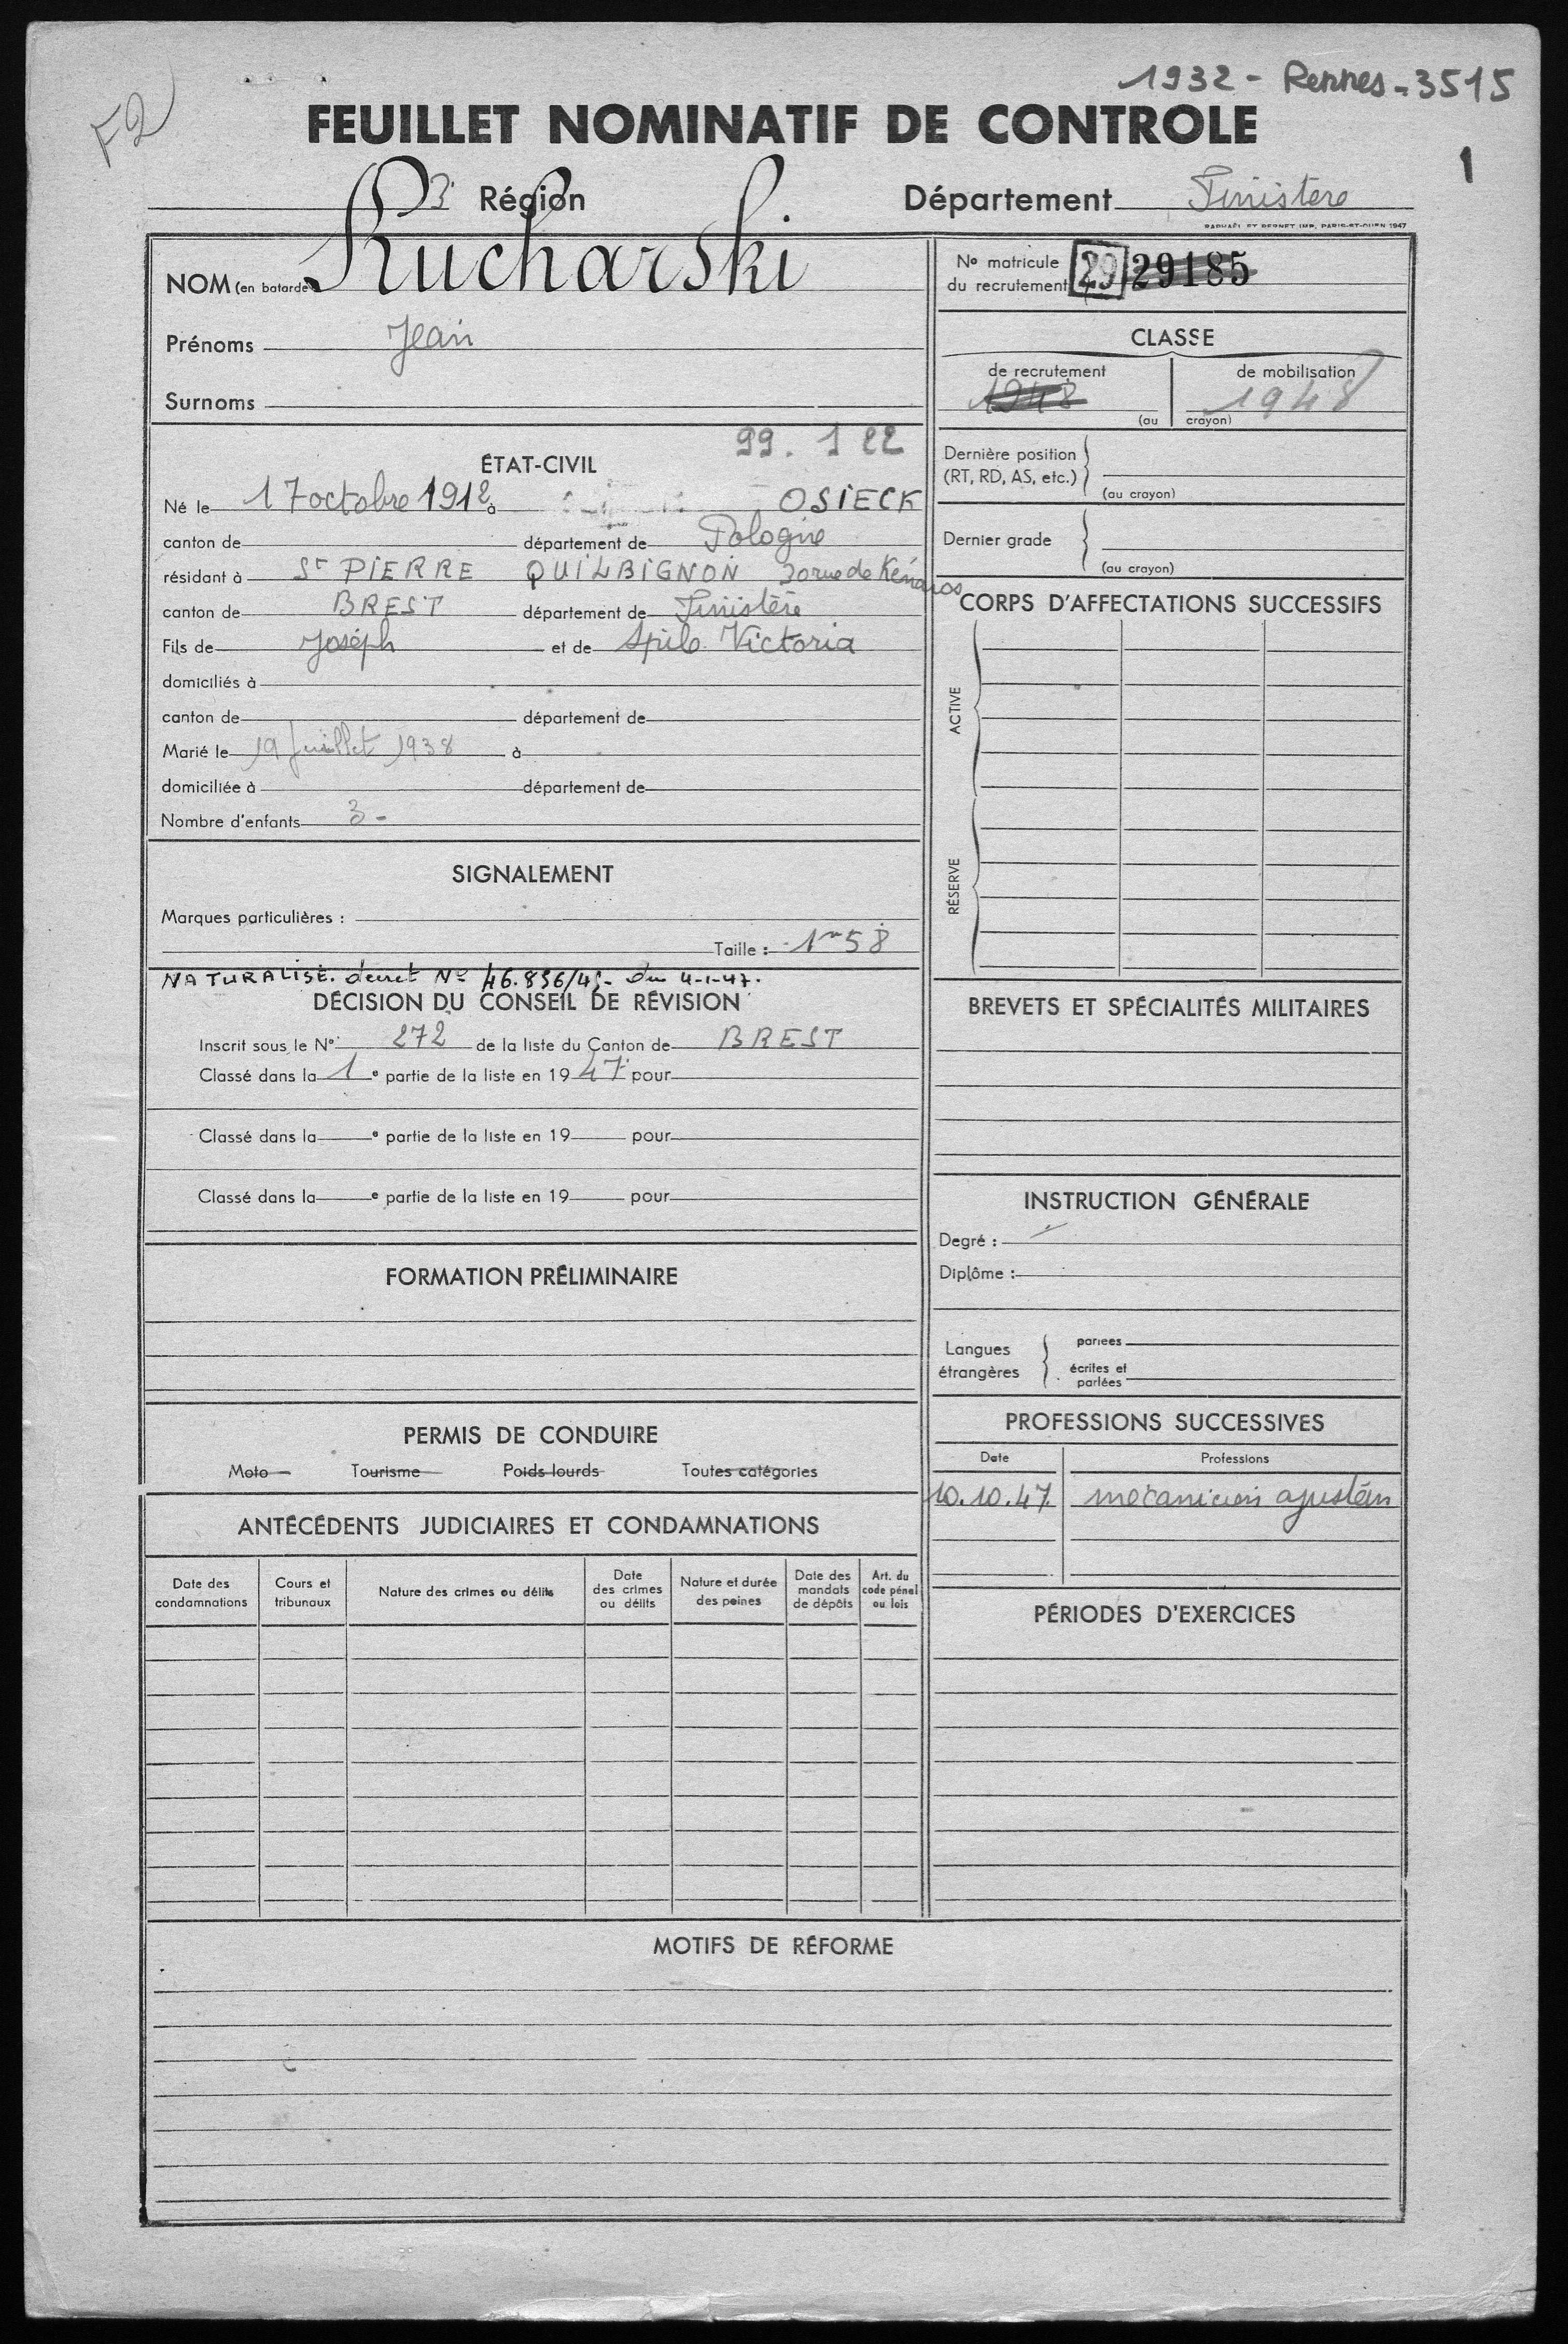 1932 - Rennes - 3515
F2
FEUILLET NOMINATIF DE CONTROLE
1
3 Région
Département Finistere
RAPHAËL ET PERNET IMP. PARIS-ST-OUEN 1947
NOM (en batarde) Kucharski
Prénoms Jean
Surnoms
99. 122
ÉTAT-CIVIL
Né le 17 octobre 1912 à OSIECK
canton de département de Pologne
résidant à St PIERRE QUILBIGNON 30 rue de
canton de BREST département de Finistère
Fils de Joseph et de Victoria
domiciliés à
canton de département de
Marié le 19 Juillet 1938 à
domiciliée à département de
Nombre d'enfants 3 -
SIGNALEMENT
Marques particulières :
Taille : 1m58
NATURALISE. decret No 46.856/45- du 4-1-47.
DÉCISION DU CONSEIL DE RÉVISION
Inscrit sous le N° 272 de la liste du Canton de BREST
Classé dans la 1 e partie de la liste en 19 47 pour
Classé dans la e partie de la liste en 19 pour
Classé dans la e partie de la liste en 19 pour
FORMATION PRÉLIMINAIRE
PERMIS DE CONDUIRE
Moto Tourisme Poids lourds Toutes catégories
ANTÉCÉDENTS JUDICIAIRES ET CONDAMNATIONS
Date des condamnations
Cours et tribunaux
Nature des crimes ou délits
Date des crimes ou délits
Nature et durée des peines
Date des mandats de dépôts
Art. du code pénal ou lois
N° matricule
du recrutement 29 29185
CLASSE
de recrutement de mobilisation
1948 1948
(au crayon)
Dernière position
(RT, RD, AS, etc.)
(au crayon)
Dernier grade
(au crayon)
CORPS D'AFFECTATIONS SUCCESSIFS
ACTIVE
RÉSERVE
BREVETS ET SPÉCIALITÉS MILITAIRES
INSTRUCTION GÉNÉRALE
Degré :
Diplôme :
Langues étrangères
parlées
écrites et parlées
PROFESSIONS SUCCESSIVES
Date Professions
10.10.47 mécanicien ajusteur
PÉRIODES D'EXERCICES
MOTIFS DE RÉFORME